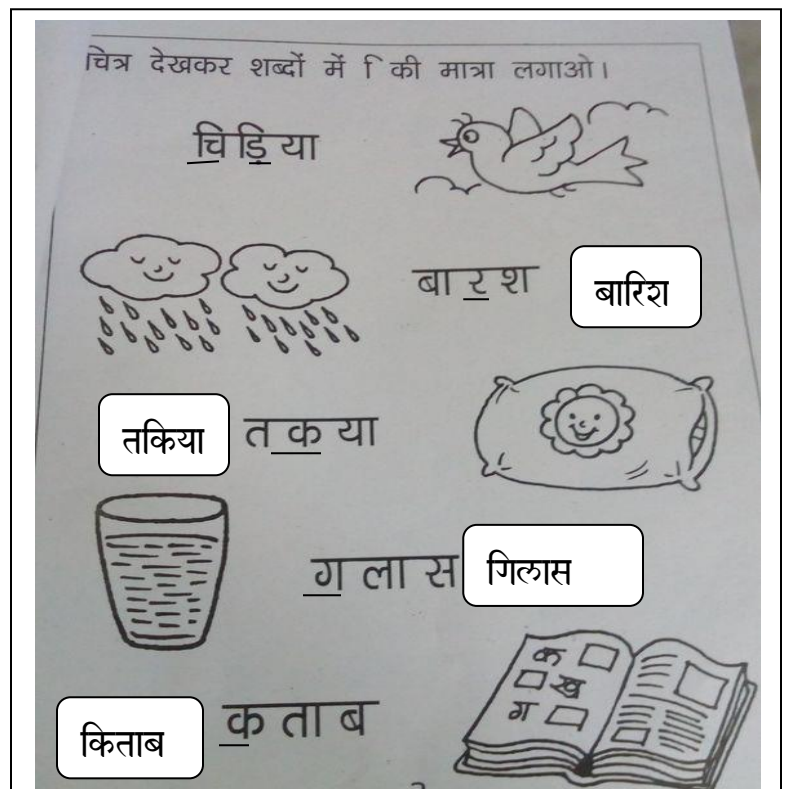 चित्र देखकर शब्दों में ि की मात्रा लगाओ।
चिड़िया
बा र श बारिश
तकिया त क या
ग ला स गिलास
क
ख
ग
किताब क ता ब